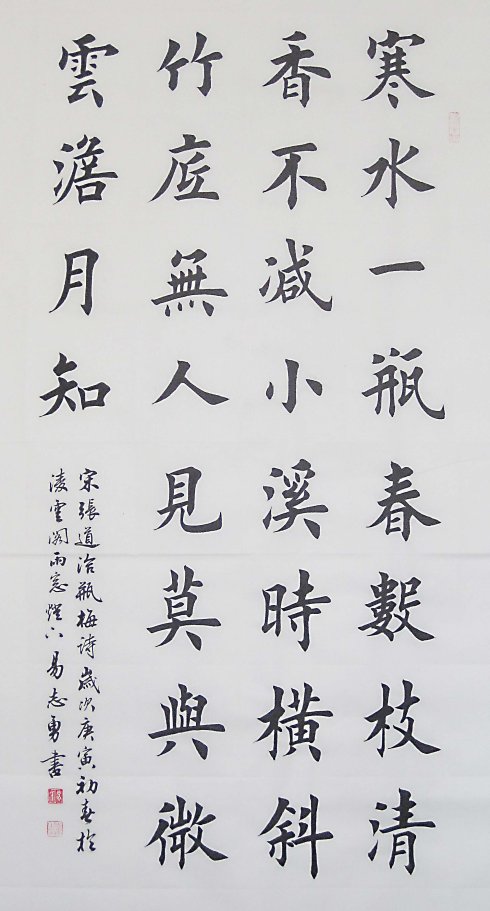 寒水一瓶春數枝清
香不減小溪時橫斜
竹底無人見莫與微
雲澹月知
宋張道洽瓶梅詩歲次庚寅初春於
淩雲閣雨窓燈下易志勇書